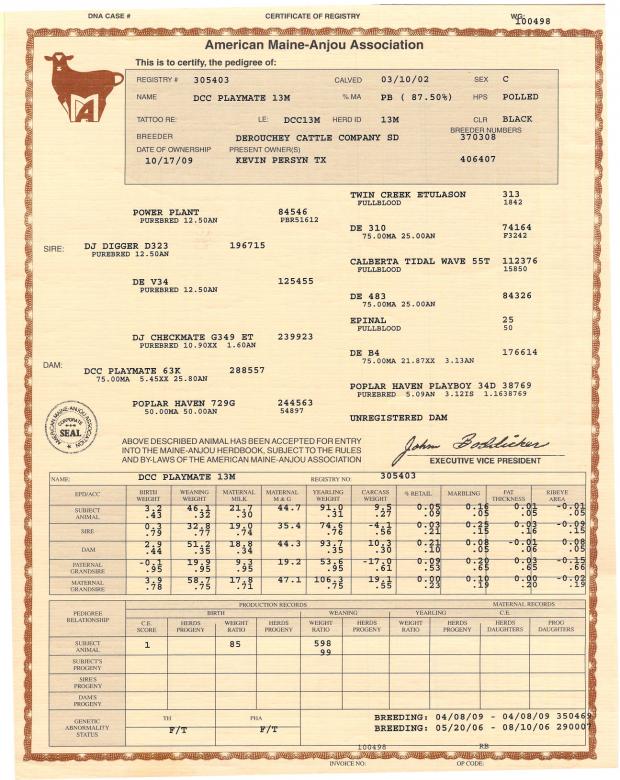 DNA CASE # CERTIFICATE OF REGISTRY WG:
100498
American Maine-Anjou Association
This is to certify, the pedigree of:
REGISTRY # 305403 CALVED 03/10/02 SEX C
NAME DCC PLAYMATE 13M % MA PB ( 87.50%) HPS POLLED
TATTOO RE: LE: DCC13M HERD ID 13M CLR BLACK
BREEDER DEROUCHEY CATTLE COMPANY SD BREEDER NUMBERS 370308
DATE OF OWNERSHIP PRESENT OWNER(S)
10/17/09 KEVIN PERSYN TX 406407
TWIN CREEK ETULASON 313
FULLBLOOD 1842
POWER PLANT 84546
PUREBRED 12.50AN PBR51612
DE 310 74164
75.00MA 25.00AN F3242
SIRE: DJ DIGGER D323 196715
PUREBRED 12.50AN
CALBERTA TIDAL WAVE 55T 112376
FULLBLOOD 15850
DE V34 125455
PUREBRED 12.50AN
DE 483 84326
75.00MA 25.00AN
EPINAL 25
FULLBLOOD 50
DJ CHECKMATE G349 ET 239923
PUREBRED 10.90XX 1.60AN
DE B4 176614
75.00MA 21.87XX 3.13AN
DAM: DCC PLAYMATE 63K 288557
75.00MA 5.45XX 25.80AN
POPLAR HAVEN PLAYBOY 34D 38769
PUREBRED 5.09AN 3.12IS 1.1638769
POPLAR HAVEN 729G 244563
50.00MA 50.00AN 54897
UNREGISTERED DAM
AMERICAN MAINE-ANJOU ASSOCIATION
CORPORATE
SEAL
ABOVE DESCRIBED ANIMAL HAS BEEN ACCEPTED FOR ENTRY
INTO THE MAINE-ANJOU HERDBOOK, SUBJECT TO THE RULES
AND BY-LAWS OF THE AMERICAN MAINE-ANJOU ASSOCIATION
John Boddicker
EXECUTIVE VICE PRESIDENT
NAME: DCC PLAYMATE 13M REGISTRY NO: 305403
EPD/ACC BIRTH WEIGHT WEANING WEIGHT MATERNAL MILK MATERNAL M & G YEARLING WEIGHT CARCASS WEIGHT % RETAIL MARBLING FAT THICKNESS RIBEYE AREA
SUBJECT ANIMAL 3.2 46.1 21.7 44.7 91.0 9.5 0.05 0.16 0.01 -0.01
.43 .32 .30 .31 .27 .09 .05 .05 .05
SIRE 0.3 32.8 19.0 35.4 74.6 -4.1 0.03 0.25 0.03 -0.09
.79 .77 .74 .76 .56 .21 .15 .16 .15
DAM 2.9 51.2 18.8 44.3 93.7 10.3 0.21 0.08 -0.01 0.06
.44 .35 .34 .35 .30 .10 .05 .08 .05
PATERNAL GRANDSIRE -0.1 19.9 9.3 19.2 53.6 -17.0 0.09 0.20 0.03 -0.15
.95 .95 .95 .95 .61 .53 .65 .65 .66
MATERNAL GRANDSIRE 3.9 58.7 17.8 47.1 106.3 19.1 0.00 0.10 0.00 -0.02
.78 .75 .71 .75 .55 .23 .19 .20 .19
PEDIGREE RELATIONSHIP PRODUCTION RECORDS MATERNAL RECORDS
BIRTH WEANING YEARLING C.E.
C.E. SCORE HERDS PROGENY WEIGHT RATIO HERDS PROGENY WEIGHT RATIO HERDS PROGENY WEIGHT RATIO HERDS PROGENY HERDS DAUGHTERS PROG DAUGHTERS
SUBJECT ANIMAL 1 85 598
99
SUBJECT'S PROGENY
SIRE'S PROGENY
DAM'S PROGENY
GENETIC ABNORMALITY STATUS TH PHA
F/T F/T
BREEDING: 04/08/09 - 04/08/09 350469
BREEDING: 05/20/06 - 08/10/06 290007
100498 RB
INVOICE NO: OP CODE: